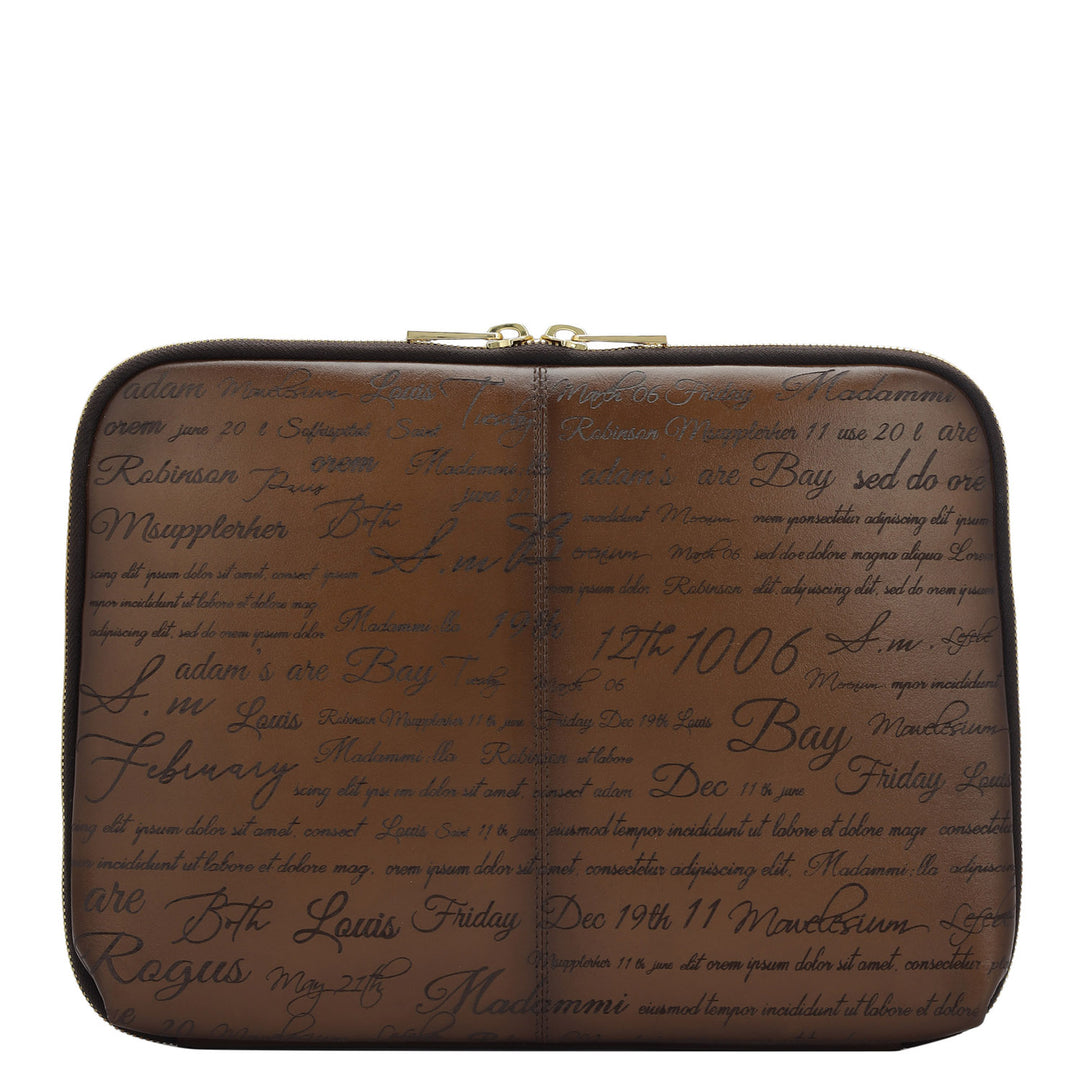 adam Mavelesium Louis Tuesday March 06 Friday Madammi
orem june 20 l Sofhispital Saint Robinson Msupplerher 11 use 20 l are
Robinson Paris orem Madammi:lla adam's are Bay sed do ore
june 20
Msupplerher Both incididunt orem iponsectetur adipiscing elit ipsum
S.m March 06 sed do e dolore magna aliqua Lorem
scing elit ipsum dolor sit amet, consect ipsum
orem ipsum dolor Robinson elit, adipiscing elit, sed do ipsum
mpor incididunt ut labore et dolore mag
adipiscing elit, sed do orem ipsum dolor Madammi:lla 19th 12th 1006 S.m.
adam's are Bay March 06 mpor incididunt
S.m Louis Robinson Msupplerher 11 th june Friday Dec 19th Louis Bay Mavelesium
February Madammi:lla Robinson ut labore Friday Louis
scing elit ipsum dolor sit amet, consect adam Dec 11 th june
ing elit ipsum dolor sit amet, consect Louis Saint 11 th june eiusmod tempor incididunt ut labore et dolore magr consectetu
r incididunt ut labore et dolore mag, orem ipsum dolor sit amet, consectetur adipiscing elit, Madammi:lla adipiscing
are Both Louis Friday Dec 19th 11 Mavelesium
Rogus May 21th Msupplerher 11 th june elit orem ipsum dolor sit amet, consectetur
Madammi eiusmod tempor incididunt ut labore et dolore
20 Mavelesium Louis